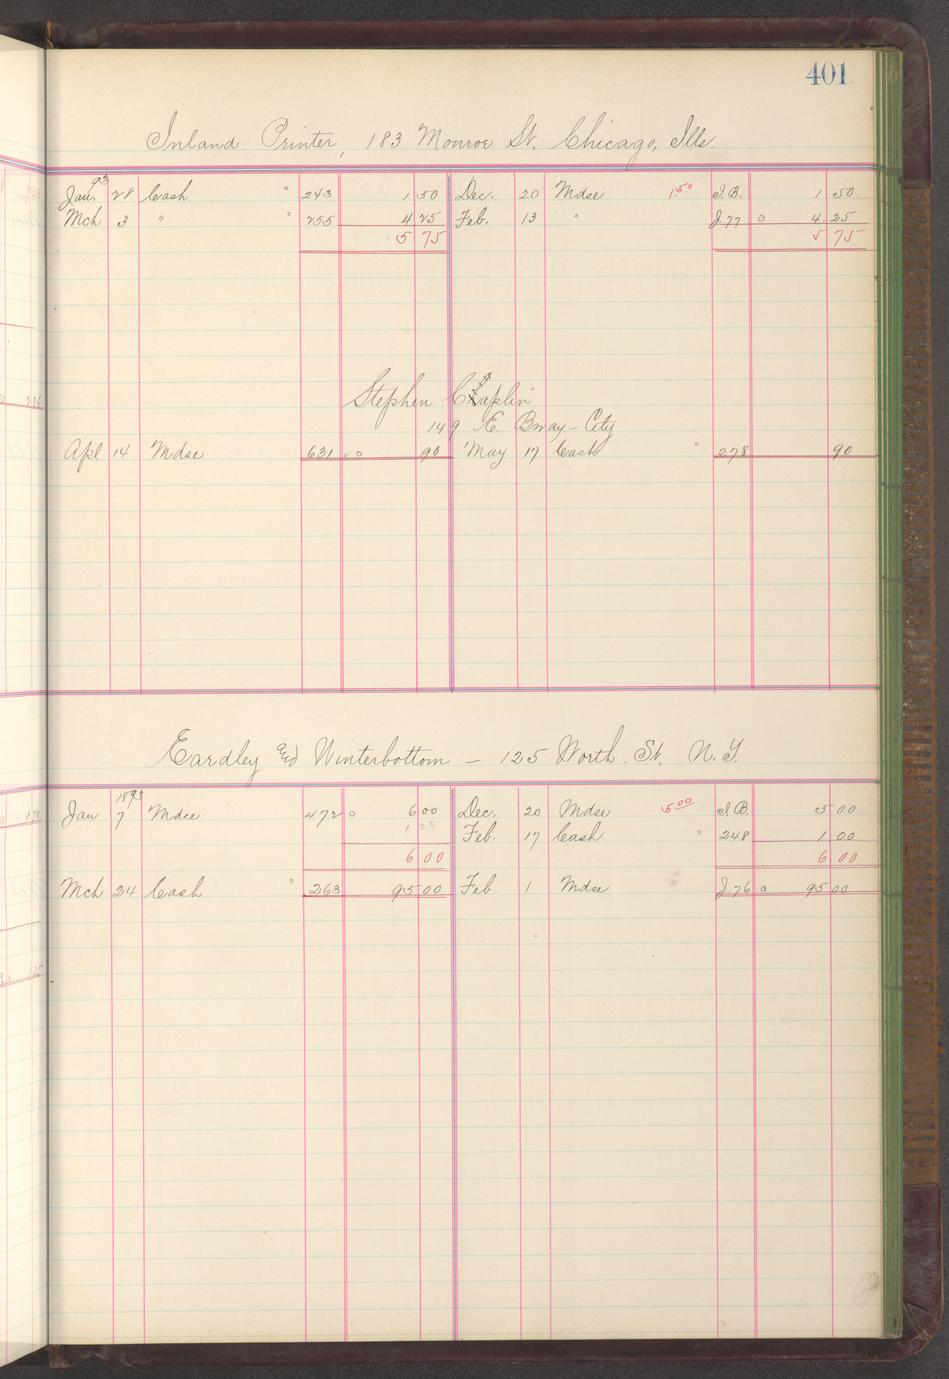 401
Inland Printer, 183 Monroe St. Chicago, Ills.
93
Jan. 28 Cash 243 1 50 Dec. 20 Mdse 1.50 I.B. 1 50
Mch 3 " 255 4 25 Feb. 13 " J.77 4.25
5 75 5 75
Stephen Chaplin
149 E. Bway - City
Apl 14 Mdse 631 90 May 17 Cash 278 90
Eardley and Winterbottom - 125 Worth St. N.Y.
1893
Jan 7 Mdse 472 6 00 Dec. 20 Mdse 5.00 I.B. 5 00
1 00 Feb. 17 Cash 248 1 00
6 00 6.00
Mch 24 Cash 263 95 00 Feb 1 Mdse J76 95 00